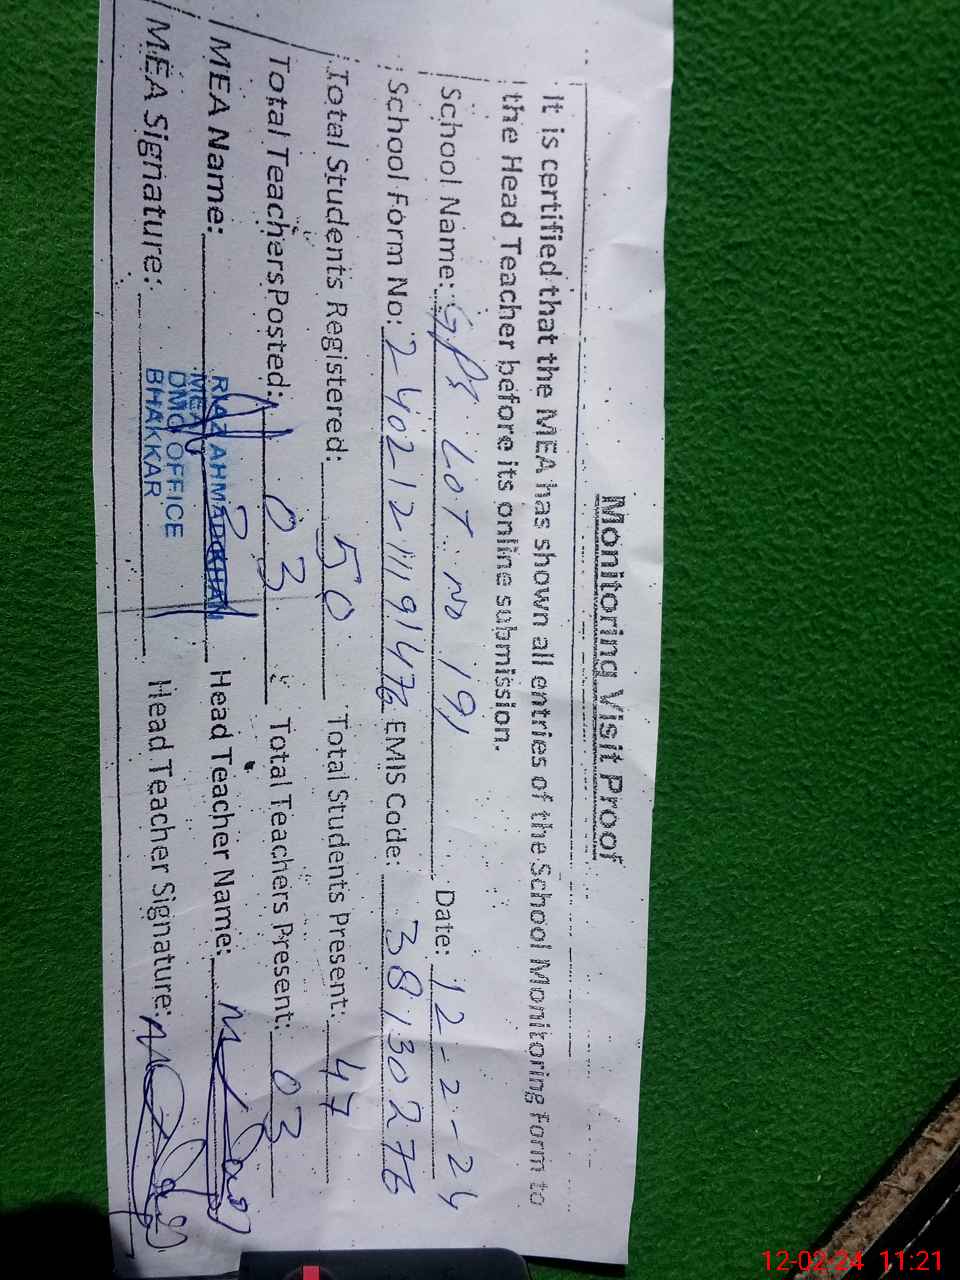 Monitoring Visit Proof
It is certified that the MEA has shown all entries of the School Monitoring Form to
the Head Teacher before its online submission.
School Name: GPS LOT NO 191 Date: 12-2-24
School Form No: EMIS Code: 38130276
Total Students Registered: 50 Total Students Present: 47
Total Teachers Posted: 03 Total Teachers Present: 03
MEA Name: RIAZ AHMAD KHAN Head Teacher Name:
MEA
DMO OFFICE
BHAKKAR
MEA Signature: Head Teacher Signature:
12-02-24 11:21